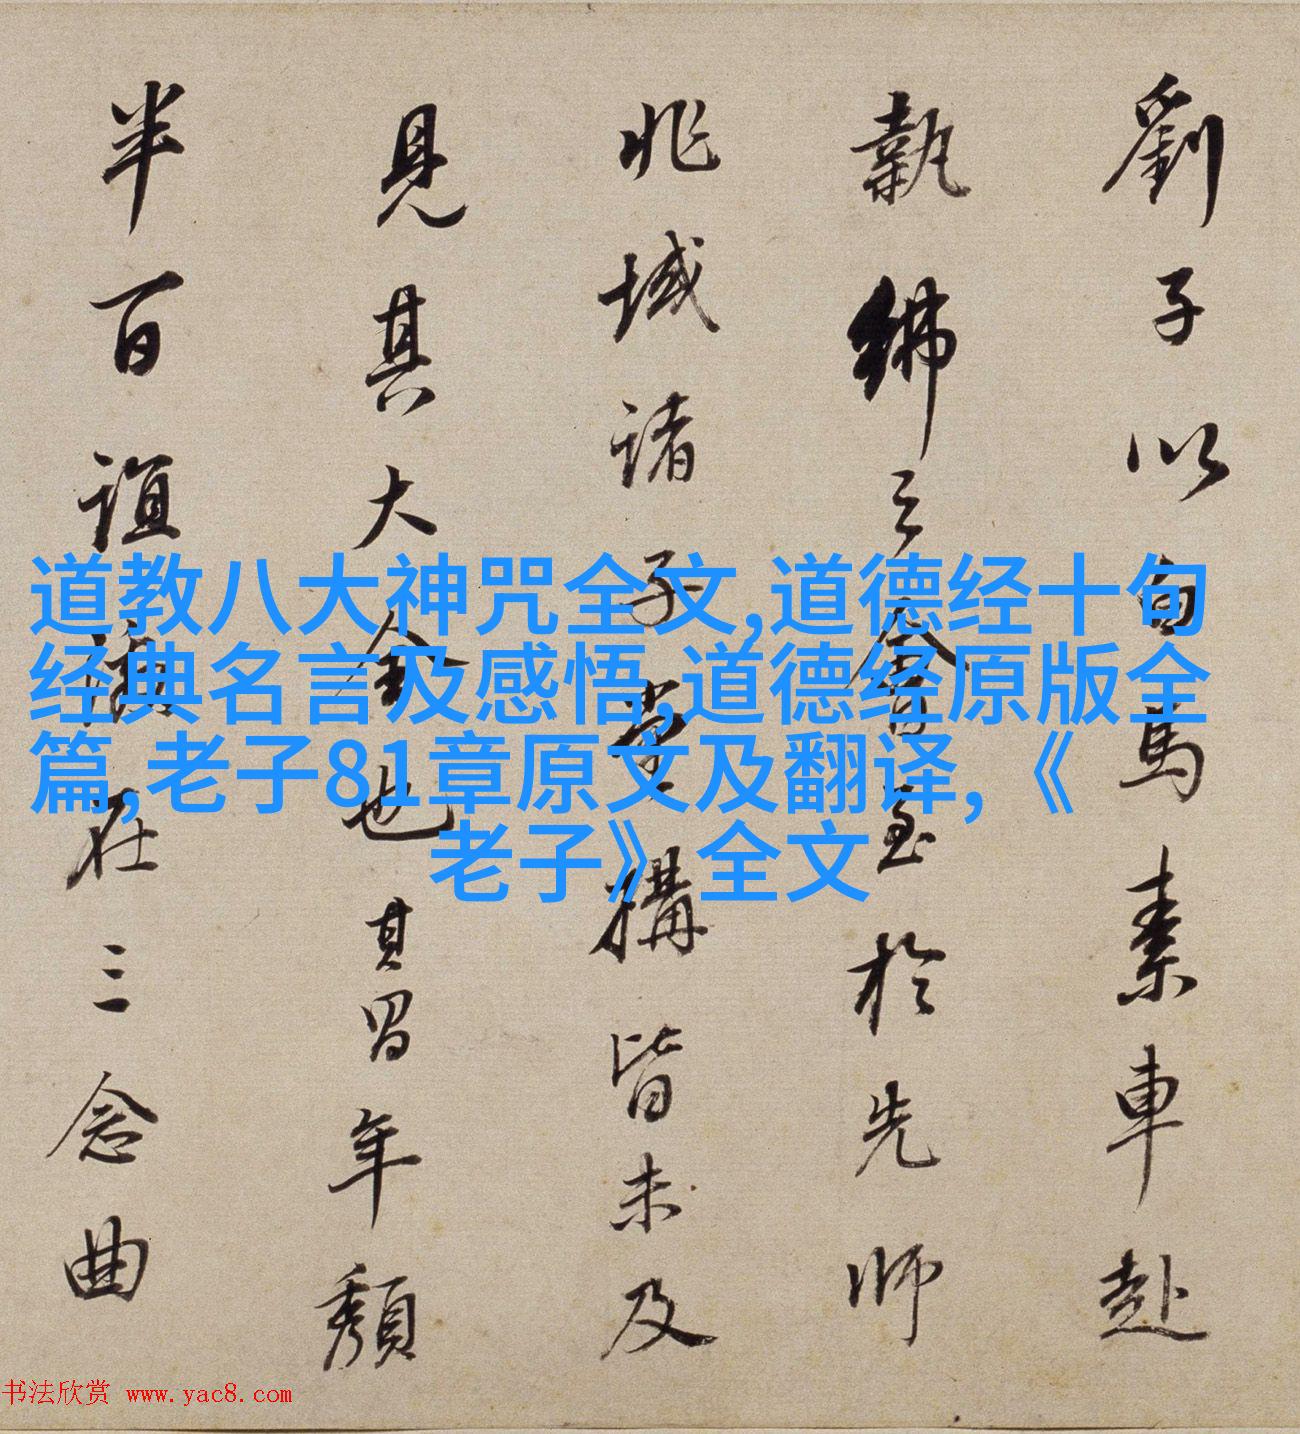 劉子以白馬素車赴
執紼之會至於先師
兆域諸子堂構皆未及
見其大全也其年頹
半百誼在三念曲
道教八大神咒全文,道德经十句
经典名言及感悟,道德经原版全
篇,老子81章原文及翻译,《
老子》全文
书法欣赏 www.yac8.com